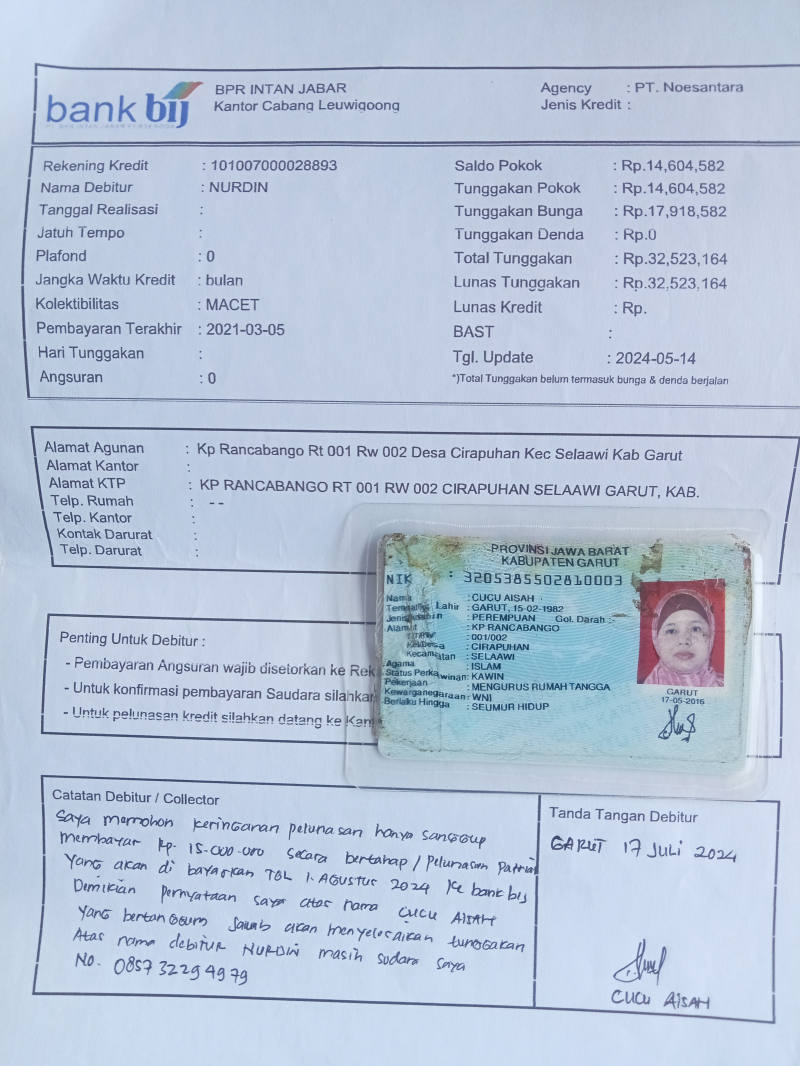 bank bij
BPR INTAN JABAR
Kantor Cabang Leuwigoong
Agency : PT. Noesantara
Jenis Kredit :
Rekening Kredit : 101007000028893
Nama Debitur : NURDIN
Tanggal Realisasi :
Jatuh Tempo :
Plafond : 0
Jangka Waktu Kredit : bulan
Kolektibilitas : MACET
Pembayaran Terakhir : 2021-03-05
Hari Tunggakan :
Angsuran : 0
Saldo Pokok : Rp.14,604,582
Tunggakan Pokok : Rp.14,604,582
Tunggakan Bunga : Rp.17,918,582
Tunggakan Denda : Rp.0
Total Tunggakan : Rp.32,523,164
Lunas Tunggakan : Rp.32,523,164
Lunas Kredit : Rp.
BAST :
Tgl. Update : 2024-05-14
*)Total Tunggakan belum termasuk bunga & denda berjalan
Alamat Agunan : Kp Rancabango Rt 001 Rw 002 Desa Cirapuhan Kec Selaawi Kab Garut
Alamat Kantor :
Alamat KTP : KP RANCABANGO RT 001 RW 002 CIRAPUHAN SELAAWI GARUT, KAB.
Telp. Rumah : --
Telp. Kantor :
Kontak Darurat :
Telp. Darurat :
PROVINSI JAWA BARAT
KABUPATEN GARUT
NIK : 3205385502810003
Nama : CUCU AISAH
Lahir : GARUT, 15-02-1982
: PEREMPUAN Gol. Darah :-
Alamat : KP RANCABANGO
: 001/002
: CIRAPUHAN
Kecamatan : SELAAWI
Agama : ISLAM
Status Perkawinan: KAWIN
Pekerjaan : MENGURUS RUMAH TANGGA
Kewarganegaraan: WNI
Berlaku Hingga : SEUMUR HIDUP
GARUT
17-05-2016
Penting Untuk Debitur :
- Pembayaran Angsuran wajib disetorkan ke Rek
- Untuk konfirmasi pembayaran Saudara silahkan
- Untuk pelunasan kredit silahkan datang ke Kan
Catatan Debitur / Collector
Saya memohon keringanan pelunasan hanya sanggup
membayar Rp. 15.000.000 secara bertahap / pelunasan
Yang akan di bayarkan TGL 1. AGUSTUS 2024 ke bank bij
Demikian pernyataan saya atas nama CUCU AISAH
Yang bertanggung jawab akan menyelesaikan tunggakan
Atas nama debitur NURDIN masih sudara saya
No. 0857 3229 4979
Tanda Tangan Debitur
GARUT 17 JULI 2024
CUCU AISAH